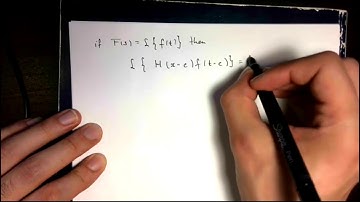 if F(s) = L{f(t)} then
L{ H(x-c) f(t-c)} =